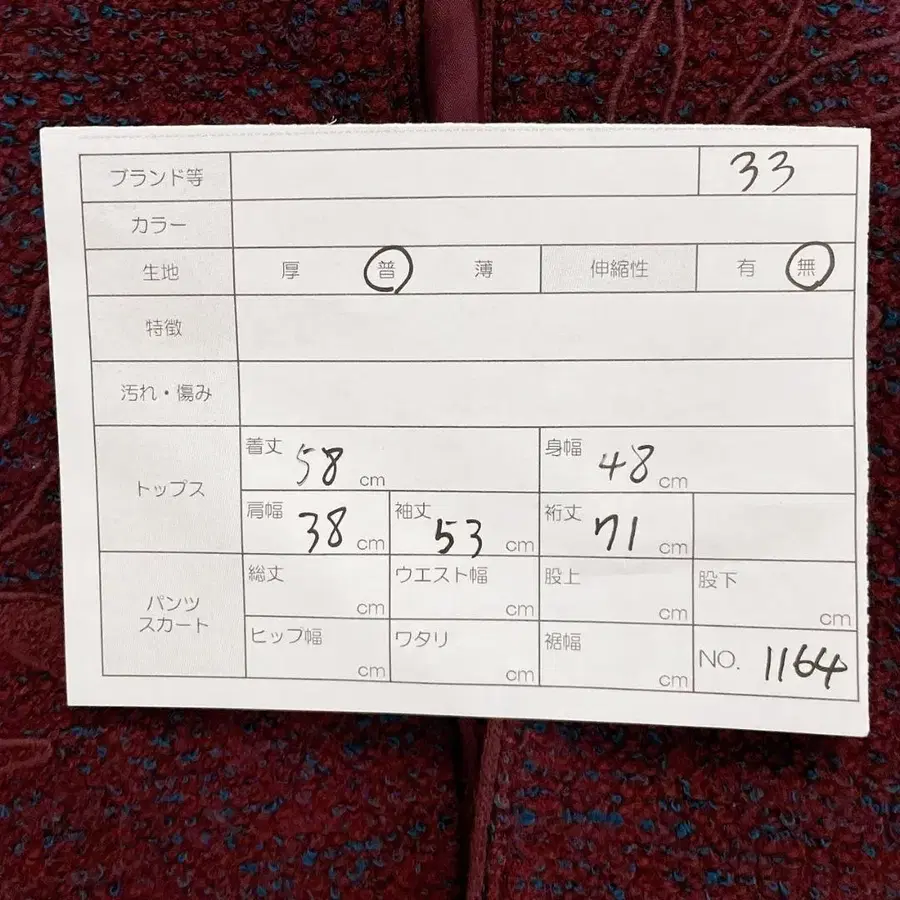 ブランド等 33
カラー
生地 厚 普 薄 伸縮性 有 無
特徴
汚れ・傷み
トップス
着丈 58 cm 身幅 48 cm
肩幅 38 cm 袖丈 53 cm 裄丈 71 cm
パンツ
スカート
総丈 cm ウエスト幅 cm 股上 cm 股下 cm
ヒップ幅 cm ワタリ cm 裾幅 cm NO. 1164